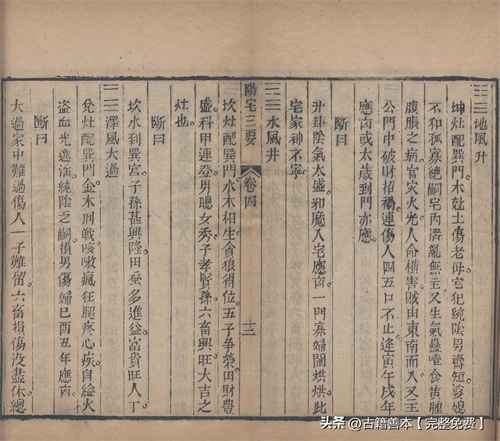 ☷☴地風升
坤灶配巽門木尅土傷老母宅犯純陰男壽短婆媳
不和孤寡絶嗣宅內淫亂無主又生氣蠱噎食黃腫
腹脹之病官灾火光人命橫害賊由東南而入又主
公門中破財招禍連傷人四五口不止逢寅午戌年
應凶或太歲到門亦應
斷曰
升卦陰氣太盛和魔人宅應凶一門寡婦鬧烘烘此
宅家神不寧
水風井
陽宅三要
卷四
十二
坎灶配巽門水木相生貪狼得位五子爭榮田財豐
盛科甲連登男聰女秀子孝賢孫六畜興旺大吉之
灶也
斷曰
坎水到巽宮子孫甚興隆田蚕多進益富貴旺人丁
澤風大過
兌灶配巽門金木刑戰咳嗽瘋狂腿疼心疾自縊火
盗血光逃流純陰乏嗣損男傷婦巳酉丑年應凶
斷曰
大過家中難過傷人一子難留六畜損傷沒盡休總
头条@古籍善本【完整免费】